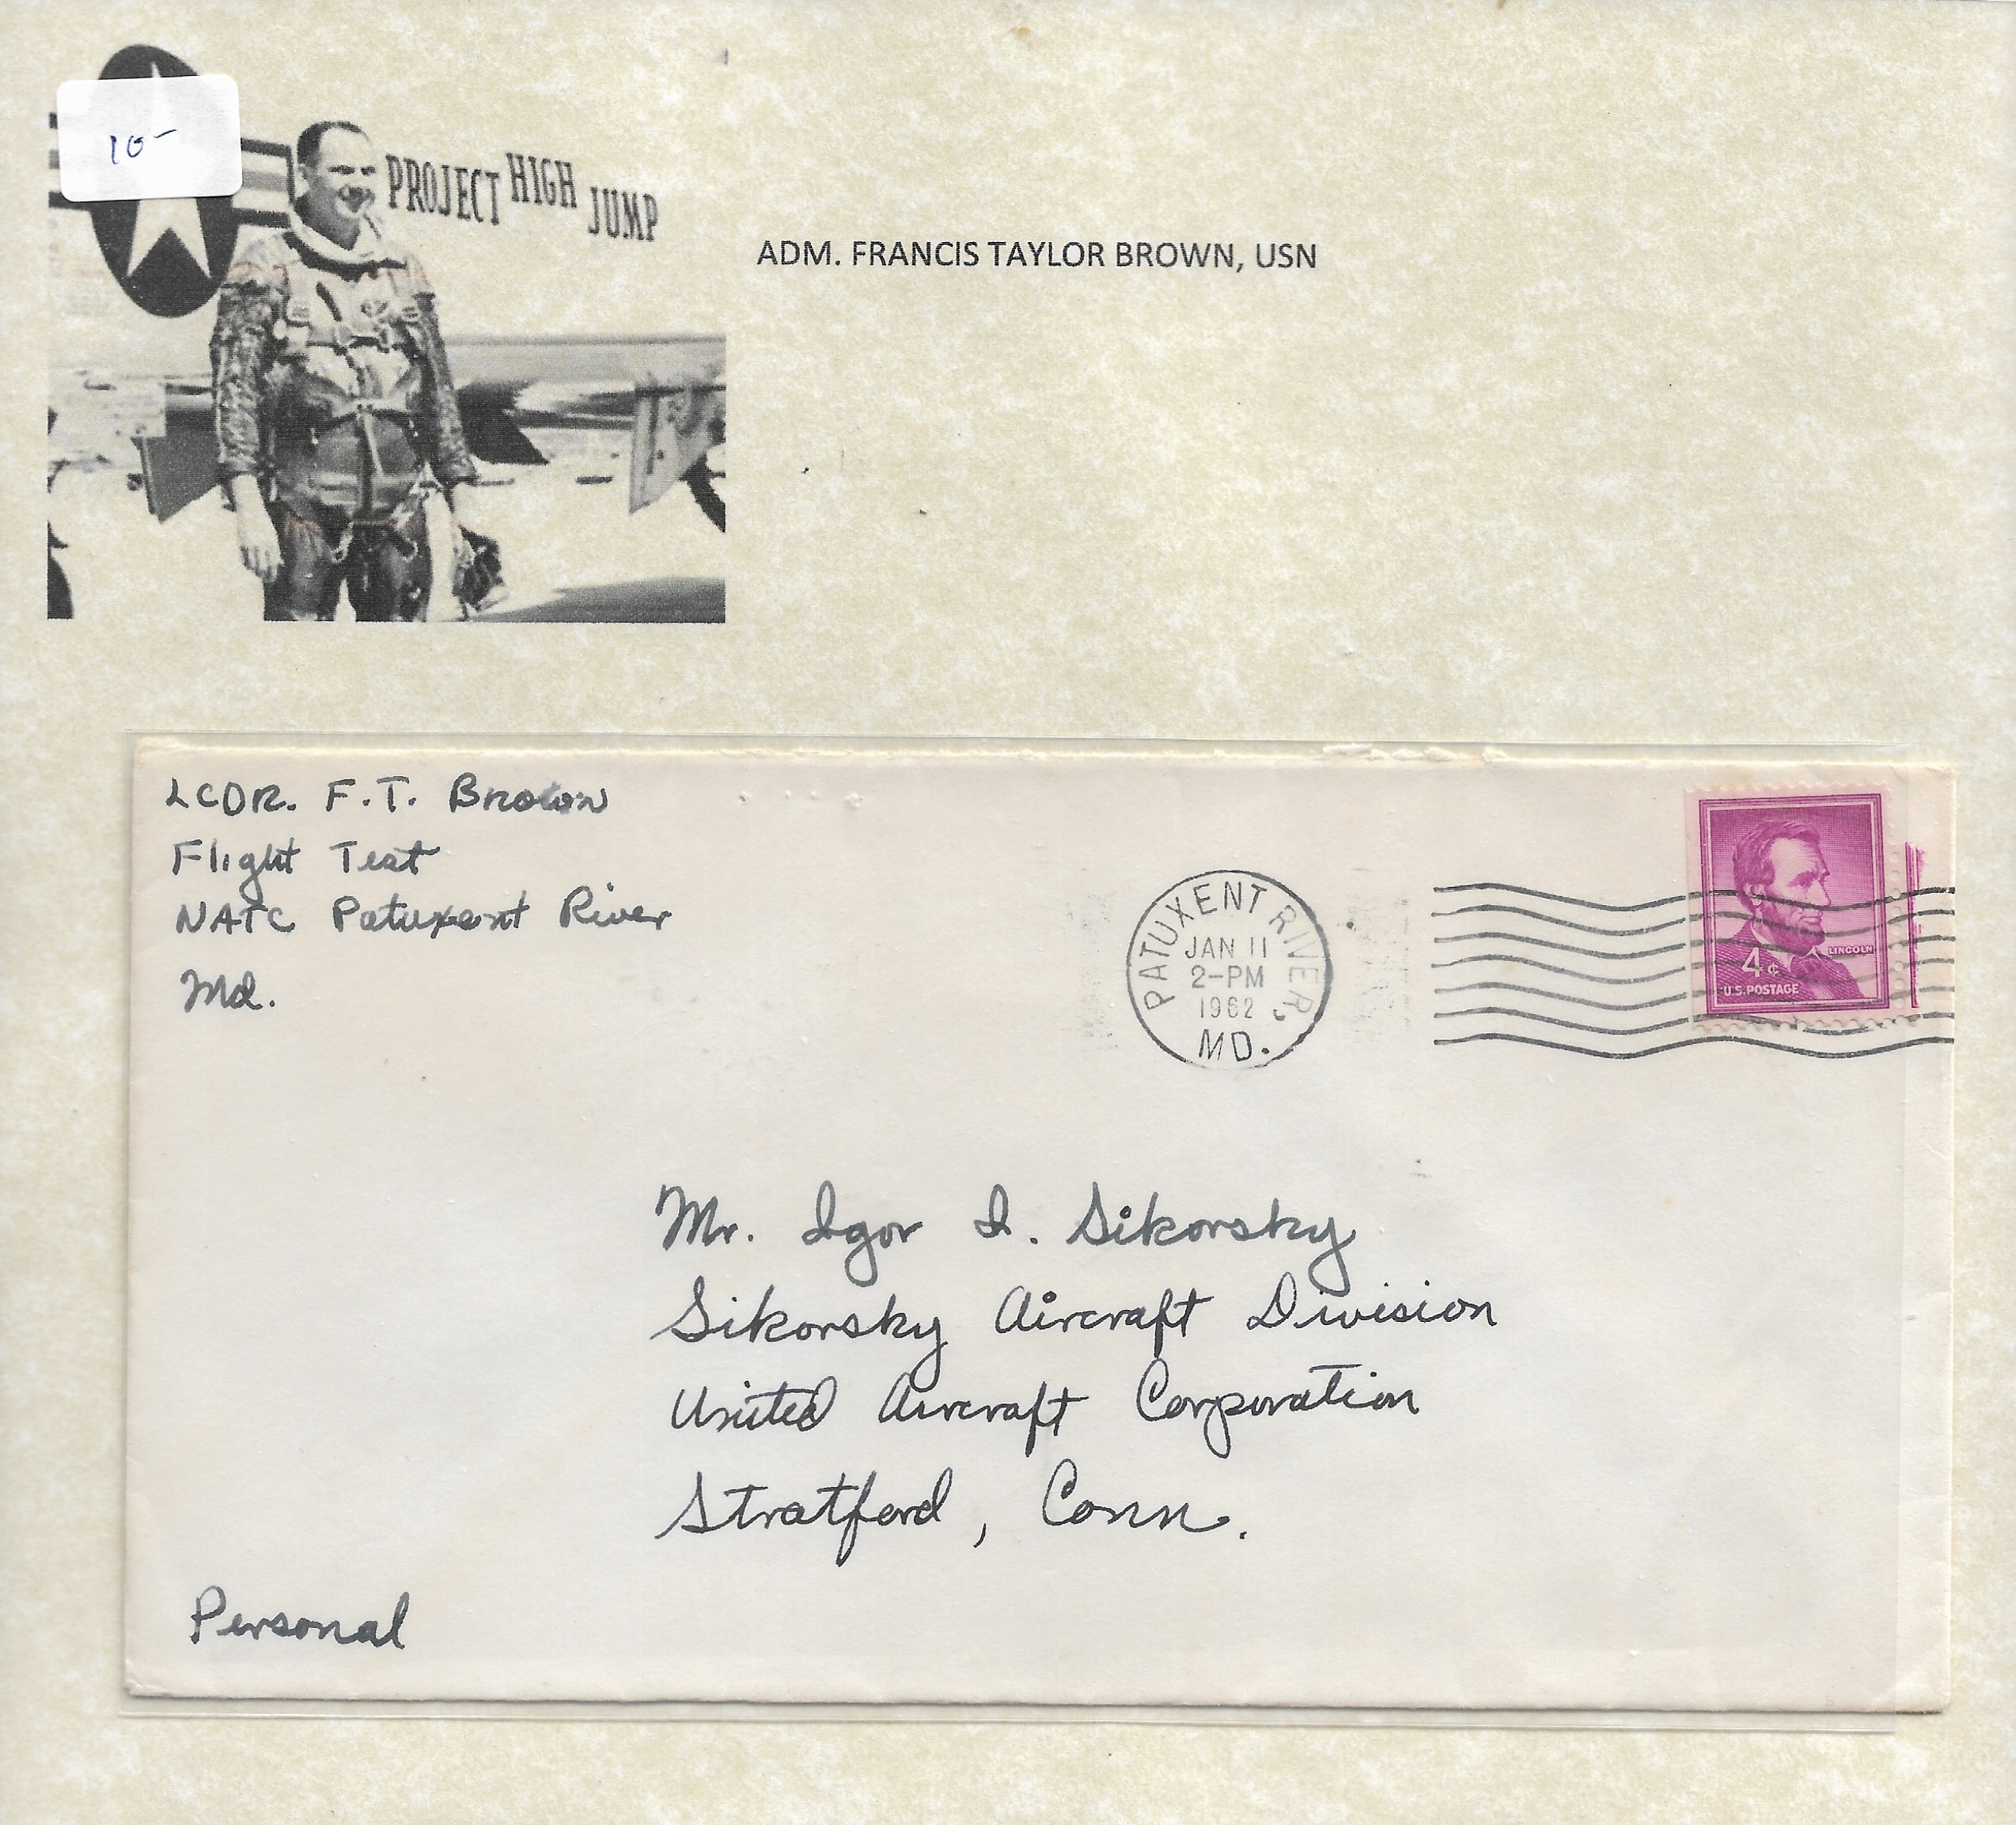 10-
PROJECT HIGH JUMP
ADM. FRANCIS TAYLOR BROWN, USN
LCDR. F.T. Brown
Flight Test
NATC Patuxent River
Md.
PATUXENT RIVER,
JAN 11
2-PM
1962
MD.
LINCOLN
4¢
U.S. POSTAGE
Mr. Igor I. Sikorsky
Sikorsky Aircraft Division
United Aircraft Corporation
Stratford, Conn.
Personal